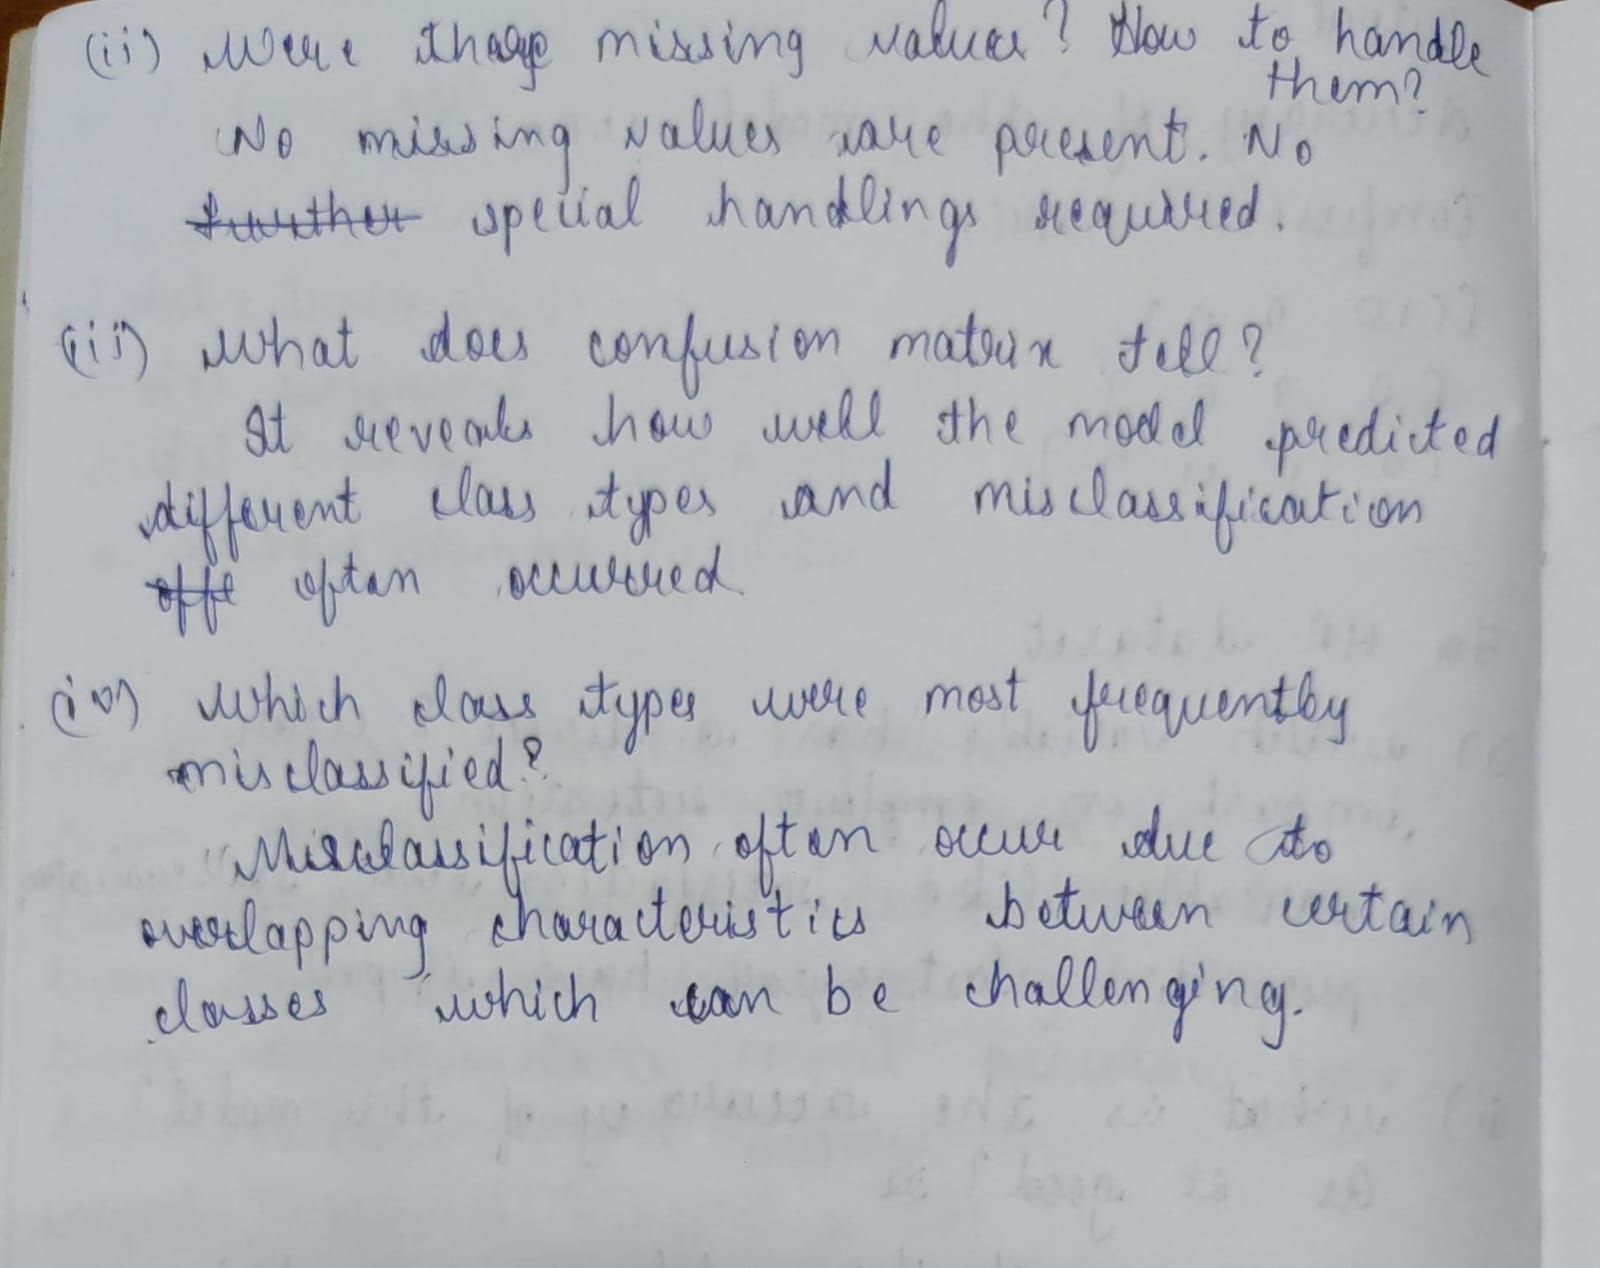 (ii) Were there missing values? How to handle
them?
No missing values are present. No
further special handlings required.
(iii) What does confusion matrix tell?
It reveals how well the model predicted
different class types and misclassification
offe often occurred
(iv) Which class types were most frequently
misclassified?
Misclassification often occur due to
overlapping characteristics between certain
classes which can be challenging.